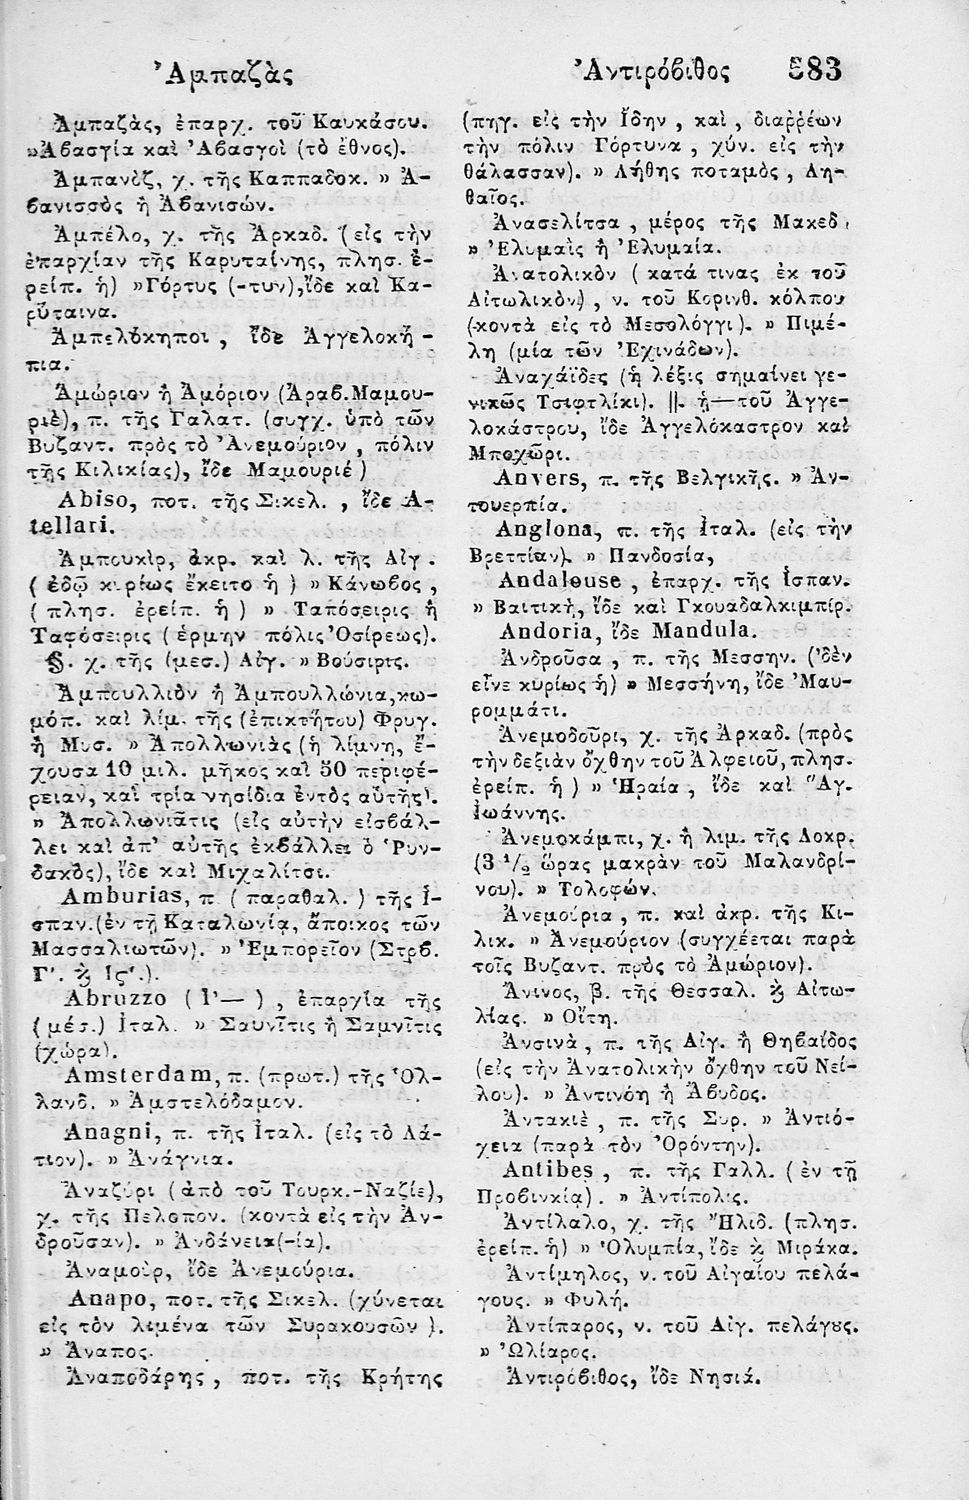 Ἀμπαζὰς
Ἀντιρόβιθος 583
Ἀμπαζὰς, ἐπαρχ. τοῦ Καυκάσου.
»Ἀβασγία καὶ Ἀβασγοὶ (τὸ ἔθνος).
Ἀμπανὲζ, χ. τῆς Καππαδοκ. » Ἀ-
βανισσὸς ἢ Ἀβανισών.
Ἀμπέλο, χ. τῆς Ἀρκαδ. (εἰς τὴν
ἐπαρχίαν τῆς Καρυταίνης, πλησ. ἐ-
ρείπ. ἡ) »Γόρτυς (-τυν),ἴδε καὶ Κα-
ρύταινα.
Ἀμπελόκηποι, ἴδε Ἀγγελοκή-
πια.
Ἀμώριον ἢ Ἀμόριον (Ἀραβ.Μαμου-
ριὲ), π. τῆς Γαλατ. (συγχ. ὑπὸ τῶν
Βυζαντ. πρὸς τὸ Ἀνεμούριον, πόλιν
τῆς Κιλικίας), ἴδε Μαμουριέ)
Abiso, ποτ. τῆς Σικελ., ἴδε A-
tellari.
Ἀμπουκὶρ, ἀκρ. καὶ λ. τῆς Αἰγ.
(ἐδῷ κυρίως ἔκειτο ἡ) » Κάνωβος,
(πλησ. ἐρείπ. ἡ) » Ταπόσειρις ἢ
Ταφόσειρις (ἑρμην πόλις Ὀσίρεως).
§. χ. τῆς (μεσ.) Αἰγ. » Βούσιρις.
Ἀμπουλλιὸν ἢ Ἀμπουλλώνια,κω-
μόπ. καὶ λίμ. τῆς (ἐπικτήτου) Φρυγ.
ἢ Μυσ. » Ἀπολλωνιὰς (ἡ λίμνη, ἔ-
χουσα 10 μιλ. μῆκος καὶ 50 περιφέ-
ρειαν, καὶ τρία νησίδια ἐντὸς αὐτῆς).
» Ἀπολλωνιᾶτις (εἰς αὐτὴν εἰσβάλ-
λει καὶ ἀπ' αὐτῆς ἐκβάλλει ὁ Ῥυν-
δακὸς), ἴδε καὶ Μιχαλίτσι.
Amburias, π (παραθαλ.) τῆς Ἰ-
σπαν.(ἐν τῇ Καταλωνίᾳ, ἄποικος τῶν
Μασσαλιωτῶν). » Ἐμπορεῖον (Στρβ.
Γ'. ϗ Ις'.).
Abruzzo (l'—), ἐπαρχία τῆς
(μέσ.) Ἰταλ. » Σαυνῖτις ἢ Σαμνῖτις
(χώρα).
Amsterdam, π. (πρωτ.) τῆς Ὀλ-
λανδ. » Ἀμστελόδαμον.
Anagni, π. τῆς Ἰταλ. (εἰς τὸ Λά-
τιον). » Ἀνάγνια.
Ἀναζύρι (ἀπὸ τοῦ Τουρκ.-Ναζίε),
χ. τῆς Πελοπον. (κοντὰ εἰς τὴν Ἀν-
δροῦσαν). » Ἀνδάνεια(-ία).
Ἀναμοὺρ, ἴδε Ἀνεμούρια.
Anapo, ποτ. τῆς Σικελ. (χύνεται
εἰς τὸν λιμένα τῶν Συρακουσῶν).
» Ἄναπος.
Ἀναποδάρης, ποτ. τῆς Κρήτης
(πηγ. εἰς τὴν Ἴδην, καὶ, διαῤῥέων
τὴν πόλιν Γόρτυνα, χύν. εἰς τὴν
θάλασσαν). » Λήθης ποταμὸς, Λη-
θαῖος.
Ἀνασελίτσα, μέρος τῆς Μακεδ.
» Ἐλυμαὶς ἢ Ἐλυμαία.
Ἀνατολικὸν (κατά τινας ἐκ τοῦ
Αἰτωλικὸν), ν. τοῦ Κορινθ. κόλπου
(κοντὰ εἰς τὸ Μεσολόγγι). » Πιμέ-
λη (μία τῶν Ἐχινάδων).
Ἀναχάϊδες (ἡ λέξις σημαίνει γε-
νικῶς Τσιφτλίκι). ||. ἡ—τοῦ Ἀγγε-
λοκάστρου, ἴδε Ἀγγελόκαστρον καὶ
Μποχῶρι.
Anvers, π. τῆς Βελγικῆς. » Ἀν-
τουερπία.
Anglona, π. τῆς Ἰταλ. (εἰς τὴν
Βρεττίαν). » Πανδοσία,
Andalouse, ἐπαρχ. τῆς Ἱσπαν.
» Βαιτικὴ, ἴδε καὶ Γκουαδαλκιμπίρ.
Andoria, ἴδε Mandula.
Ἀνδροῦσα, π. τῆς Μεσσην. ('δὲν
εἶνε κυρίως ἡ) » Μεσσήνη, ἴδε Μαυ-
ρομμάτι.
Ἀνεμοδοῦρι, χ. τῆς Ἀρκαδ. (πρὸς
τὴν δεξιὰν ὄχθην τοῦ Ἀλφειοῦ, πλησ.
ἐρείπ. ἡ) » Ἡραία, ἴδε καὶ Ἅγ.
Ἰωάννης.
Ἀνεμοκάμπι, χ. ἢ λιμ. τῆς Λοκρ.
(3 1/2 ὥρας μακρὰν τοῦ Μαλανδρί-
νου). » Τολοφών.
Ἀνεμούρια, π. καὶ ἀκρ. τῆς Κι-
λικ. » Ἀνεμούριον (συγχέεται παρὰ
τοῖς Βυζαντ. πρὸς τὸ Ἀμώριον).
Ἄνινος, β. τῆς Θεσσαλ. ϗ Αἰτω-
λίας. » Οἴτη.
Ἀνσινὰ, π. τῆς Αἰγ. ἢ Θηβαΐδος
(εἰς τὴν Ἀνατολικὴν ὄχθην τοῦ Νεί-
λου). » Ἀντινόη ἢ Ἄβυδος.
Ἀντακιὲ, π. τῆς Συρ. » Ἀντιό-
χεια (παρὰ τὸν Ὀρόντην).
Antibes, π. τῆς Γαλλ. (ἐν τῇ
Προβινκίᾳ). » Ἀντίπολις.
Ἀντίλαλο, χ. τῆς Ἤλιδ. (πλησ.
ἐρείπ. ἡ) » Ὀλυμπία, ἴδε ϗ Μιράκα.
Ἀντίμηλος, ν. τοῦ Αἰγαίου πελά-
γους. » Φυλή.
Ἀντίπαρος, ν. τοῦ Αἰγ. πελάγȣς.
» Ὠλίαρος.
Ἀντιρόβιθος, ἴδε Νησιά.